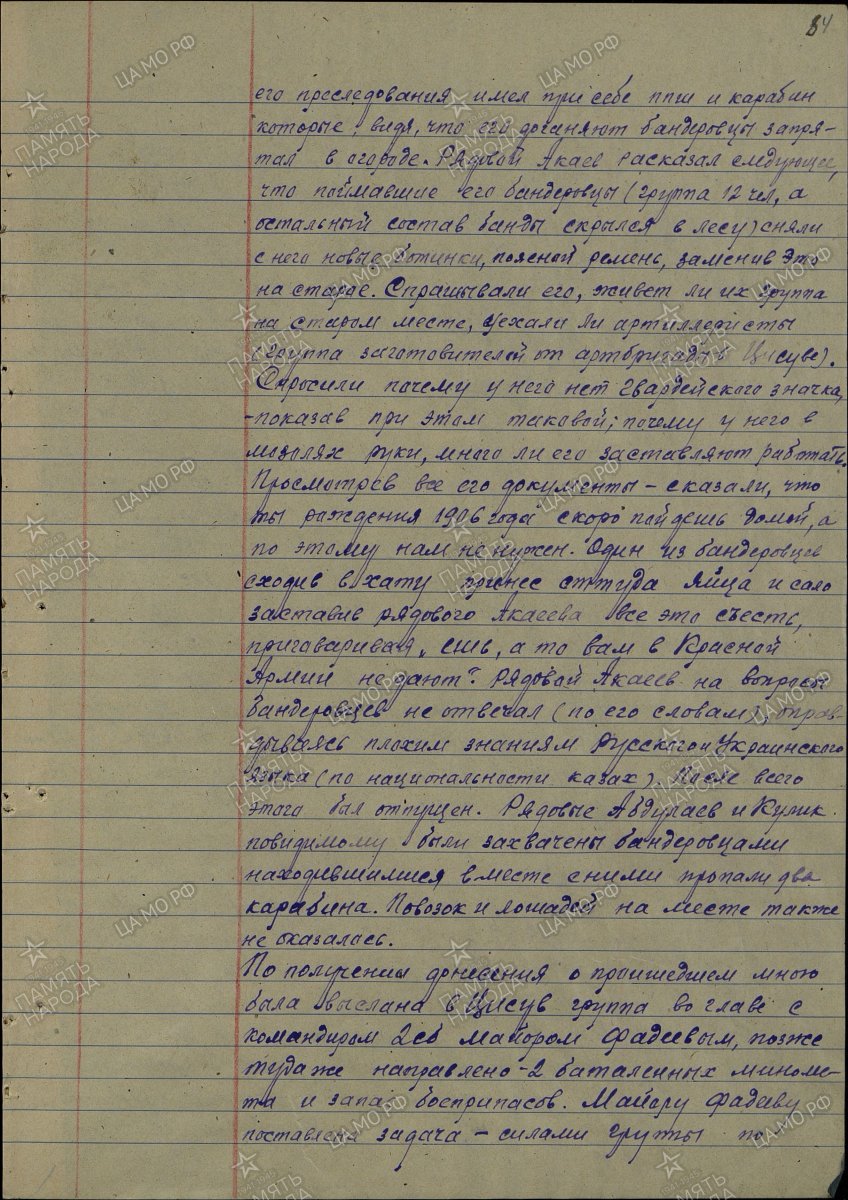 84
его преследования имел при себе ппш и карабин
которые, видя, что его догоняют бандеровцы запря-
тал в огороде. Рядовой Акаев расказал следующее,
что поймавшие его бандеровцы (группа 12 чел, а
остальный состав банды скрылся в лесу) сняли
с него новые ботинки, поясной ремень, заменив это
на старое. Спрашывали его, живет ли их группа
на старом месте, уехали ли артиллеристы
(группа заготовителей от артбригады в Цисуве).
Спросили почему у него нет гвардейского значка,
-показав при этом таковой; почему у него в
мозолях руки, много ли его заставляют работать.
Просмотрев все его документы – сказали, что
ты рождения 1906 года скоро пойдешь домой, а
по этому нам не нужен. Один из бандеровцев
сходив в хату принес оттуда яйца и сало
заставив рядового Акаева все это съесть,
приговаривая „ешь, а то вам в Красной
Армии не дают". Рядовой Акаев на вопросы
бандеровцев не отвечал (по его словам), оправ-
дываясь плохим знаниям Русского и Украинского
языка (по национальности казах). После всего
этого был отпущен. Рядовые Абдулаев и Кулик
повидимому были захвачены бандеровцами
находившимися вместе с ними пропали два
карабина. Повозок и лошадей на месте также
не оказалась.
По получении донесения о произшедшем мною
была выслана в Цисув группа во главе с
командиром 2сб майором Фадеевым, позже
туда же направлено -2 баталенных миноме-
та и запас боеприпасов. Майору Фадееву
поставлена задача – силами группы по-
ЦАМО РФ
ПАМЯТЬ НАРОДА